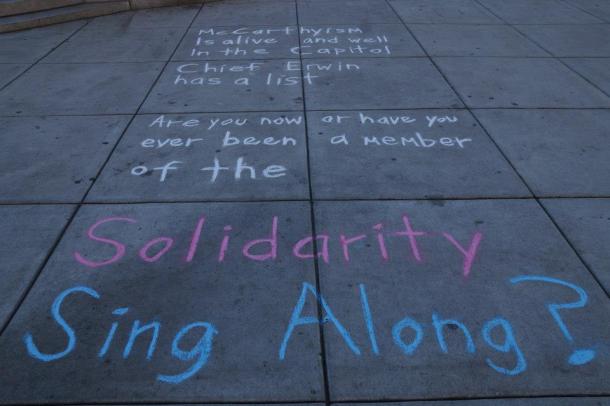 McCarthyism
Is alive and well
In the Capitol
Chief Erwin
has a list
Are you now or have you
ever been a member
of the
Solidarity
Sing Along?